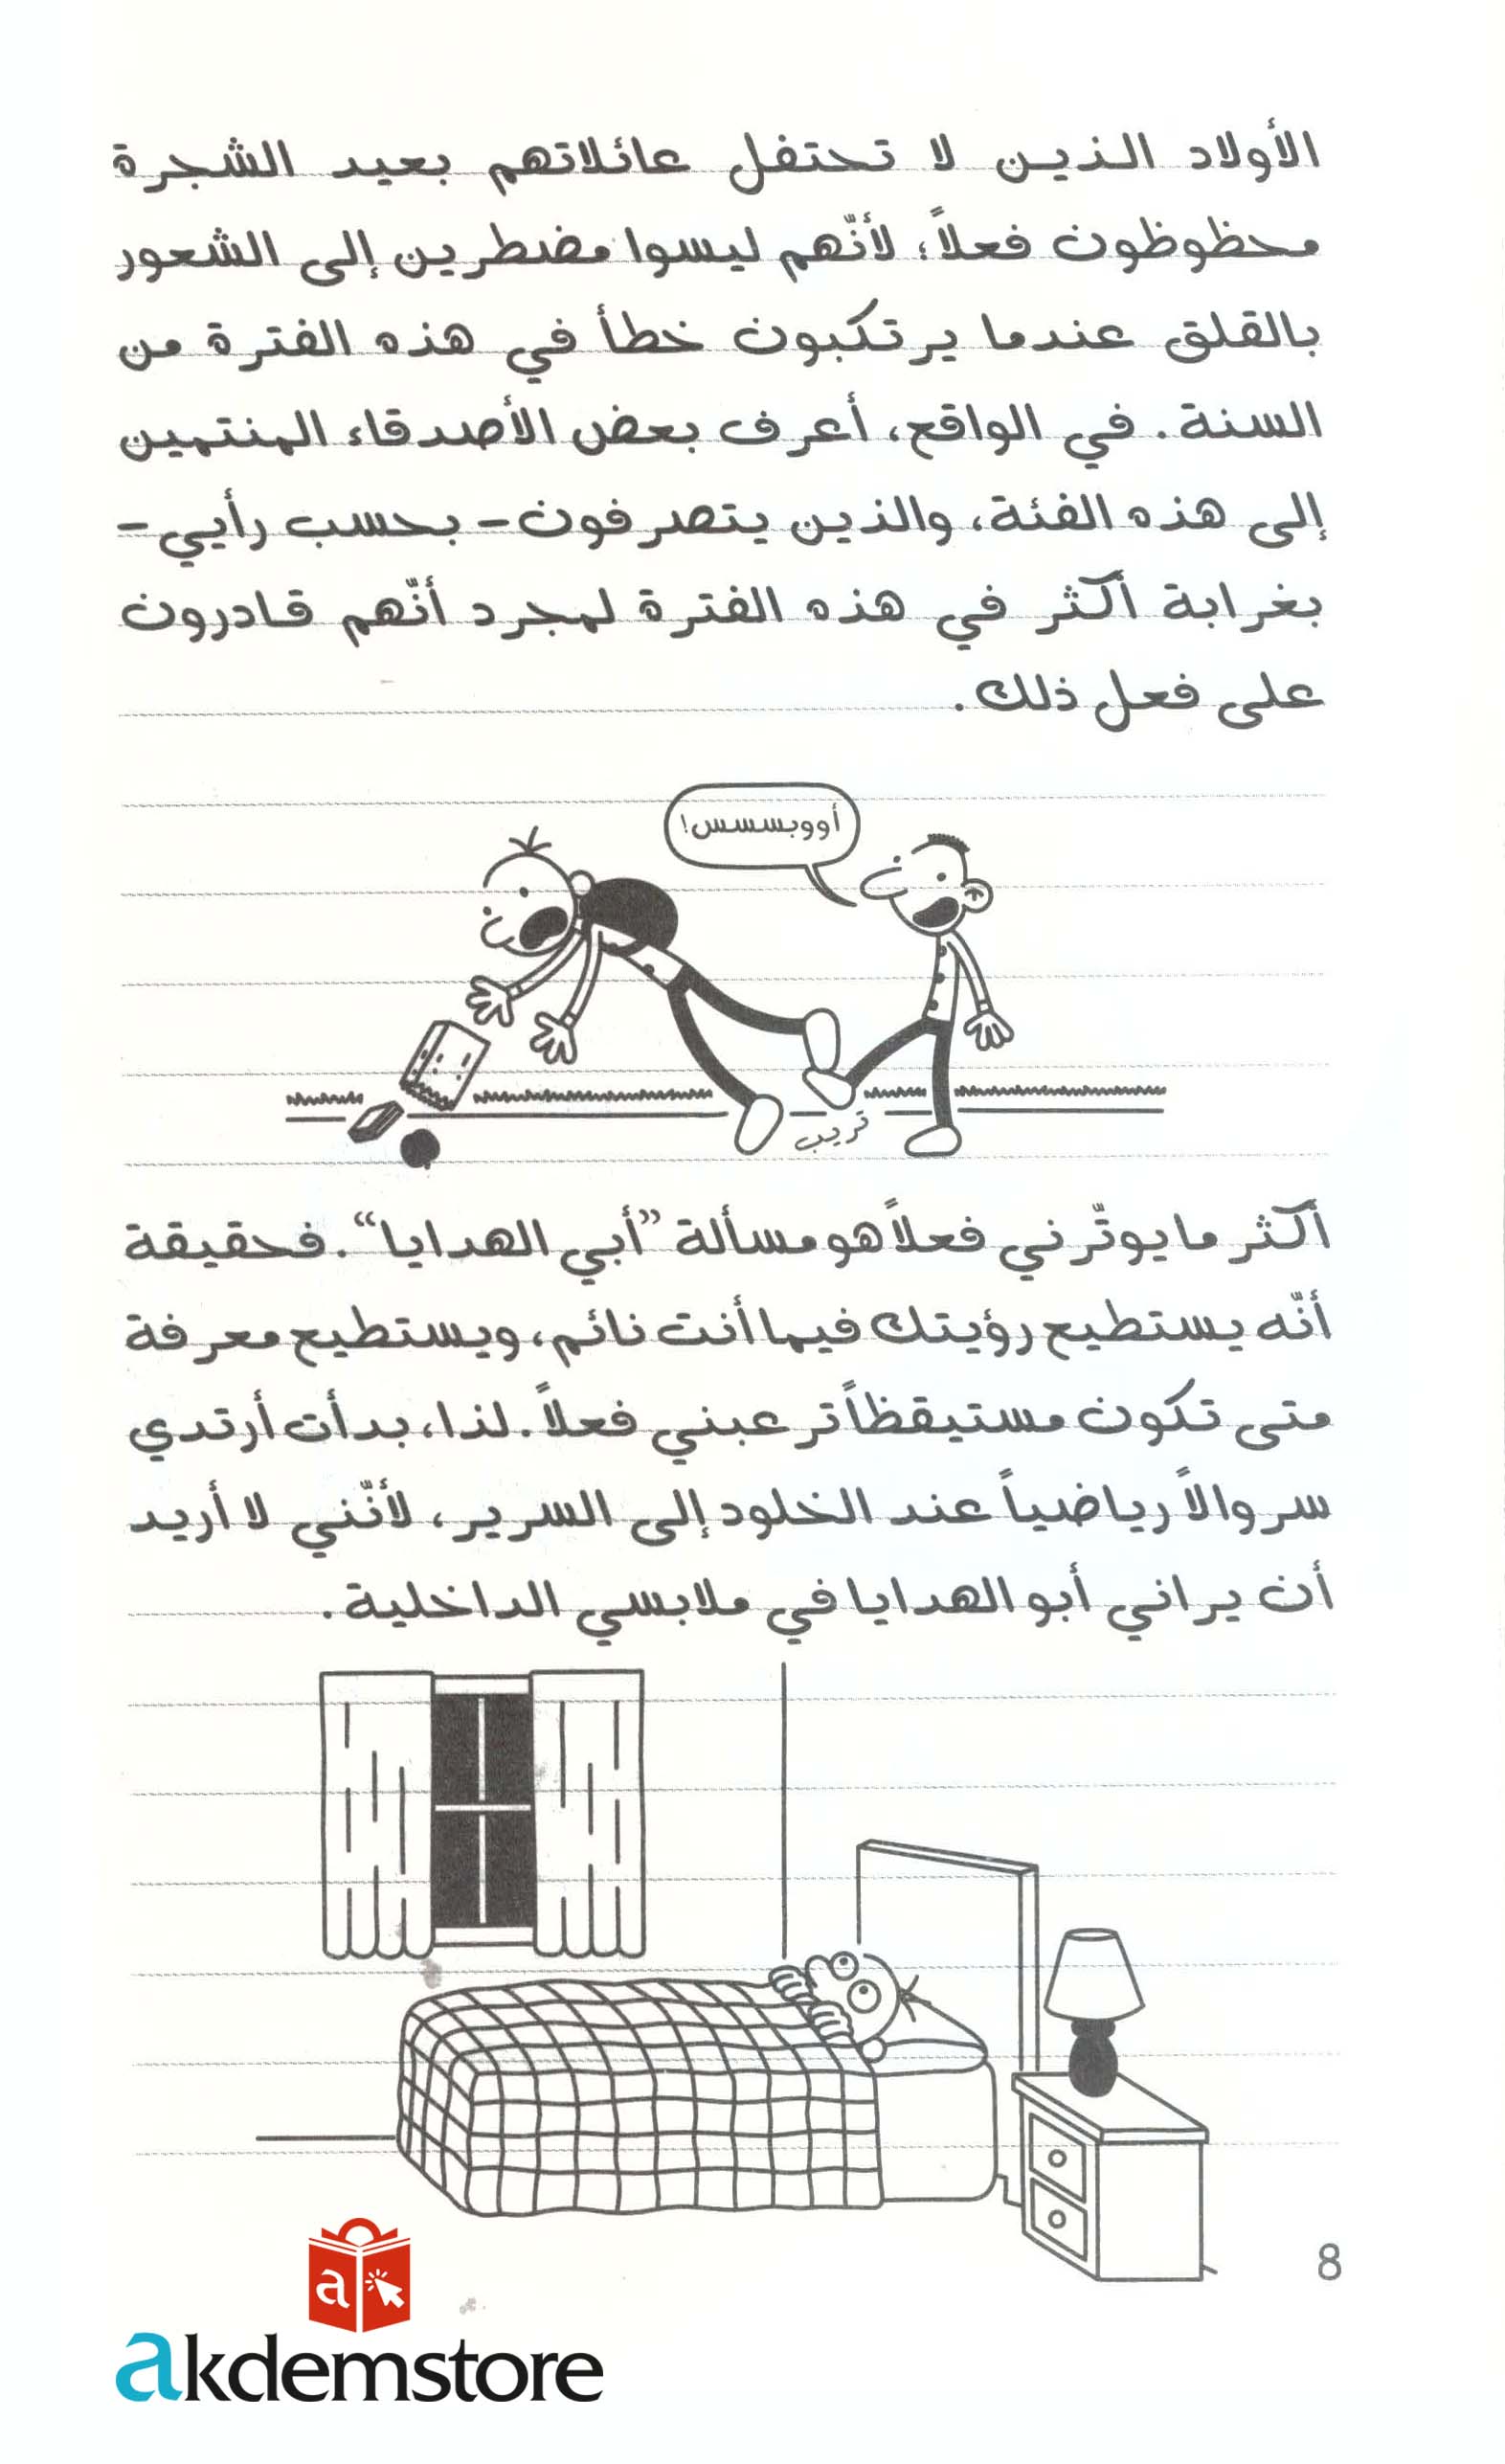 الأولاد الذين لا تحتفل عائلاتهم بعيد الشجرة
محظوظون فعلاً؛ لأنّهم ليسوا مضطرين إلى الشعور
بالقلق عندما يرتكبون خطأ في هذه الفترة من
السنة. في الواقع، أعرف بعض الأصدقاء المنتمين
إلى هذه الفئة، والذين يتصرفون- بحسب رأيي-
بغرابة أكثر في هذه الفترة لمجرد أنّهم قادرون
على فعل ذلك.
أووبسسس!
تريب
أكثر ما يوتّرني فعلاً هو مسألة "أبي الهدايا". فحقيقة
أنّه يستطيع رؤيتك فيما أنت نائم، ويستطيع معرفة
متى تكون مستيقظاً ترعبني فعلاً. لذا، بدأت أرتدي
سروالاً رياضياً عند الخلود إلى السرير، لأنّني لا أريد
أن يراني أبو الهدايا في ملابسي الداخلية.
8
a
akdemstore